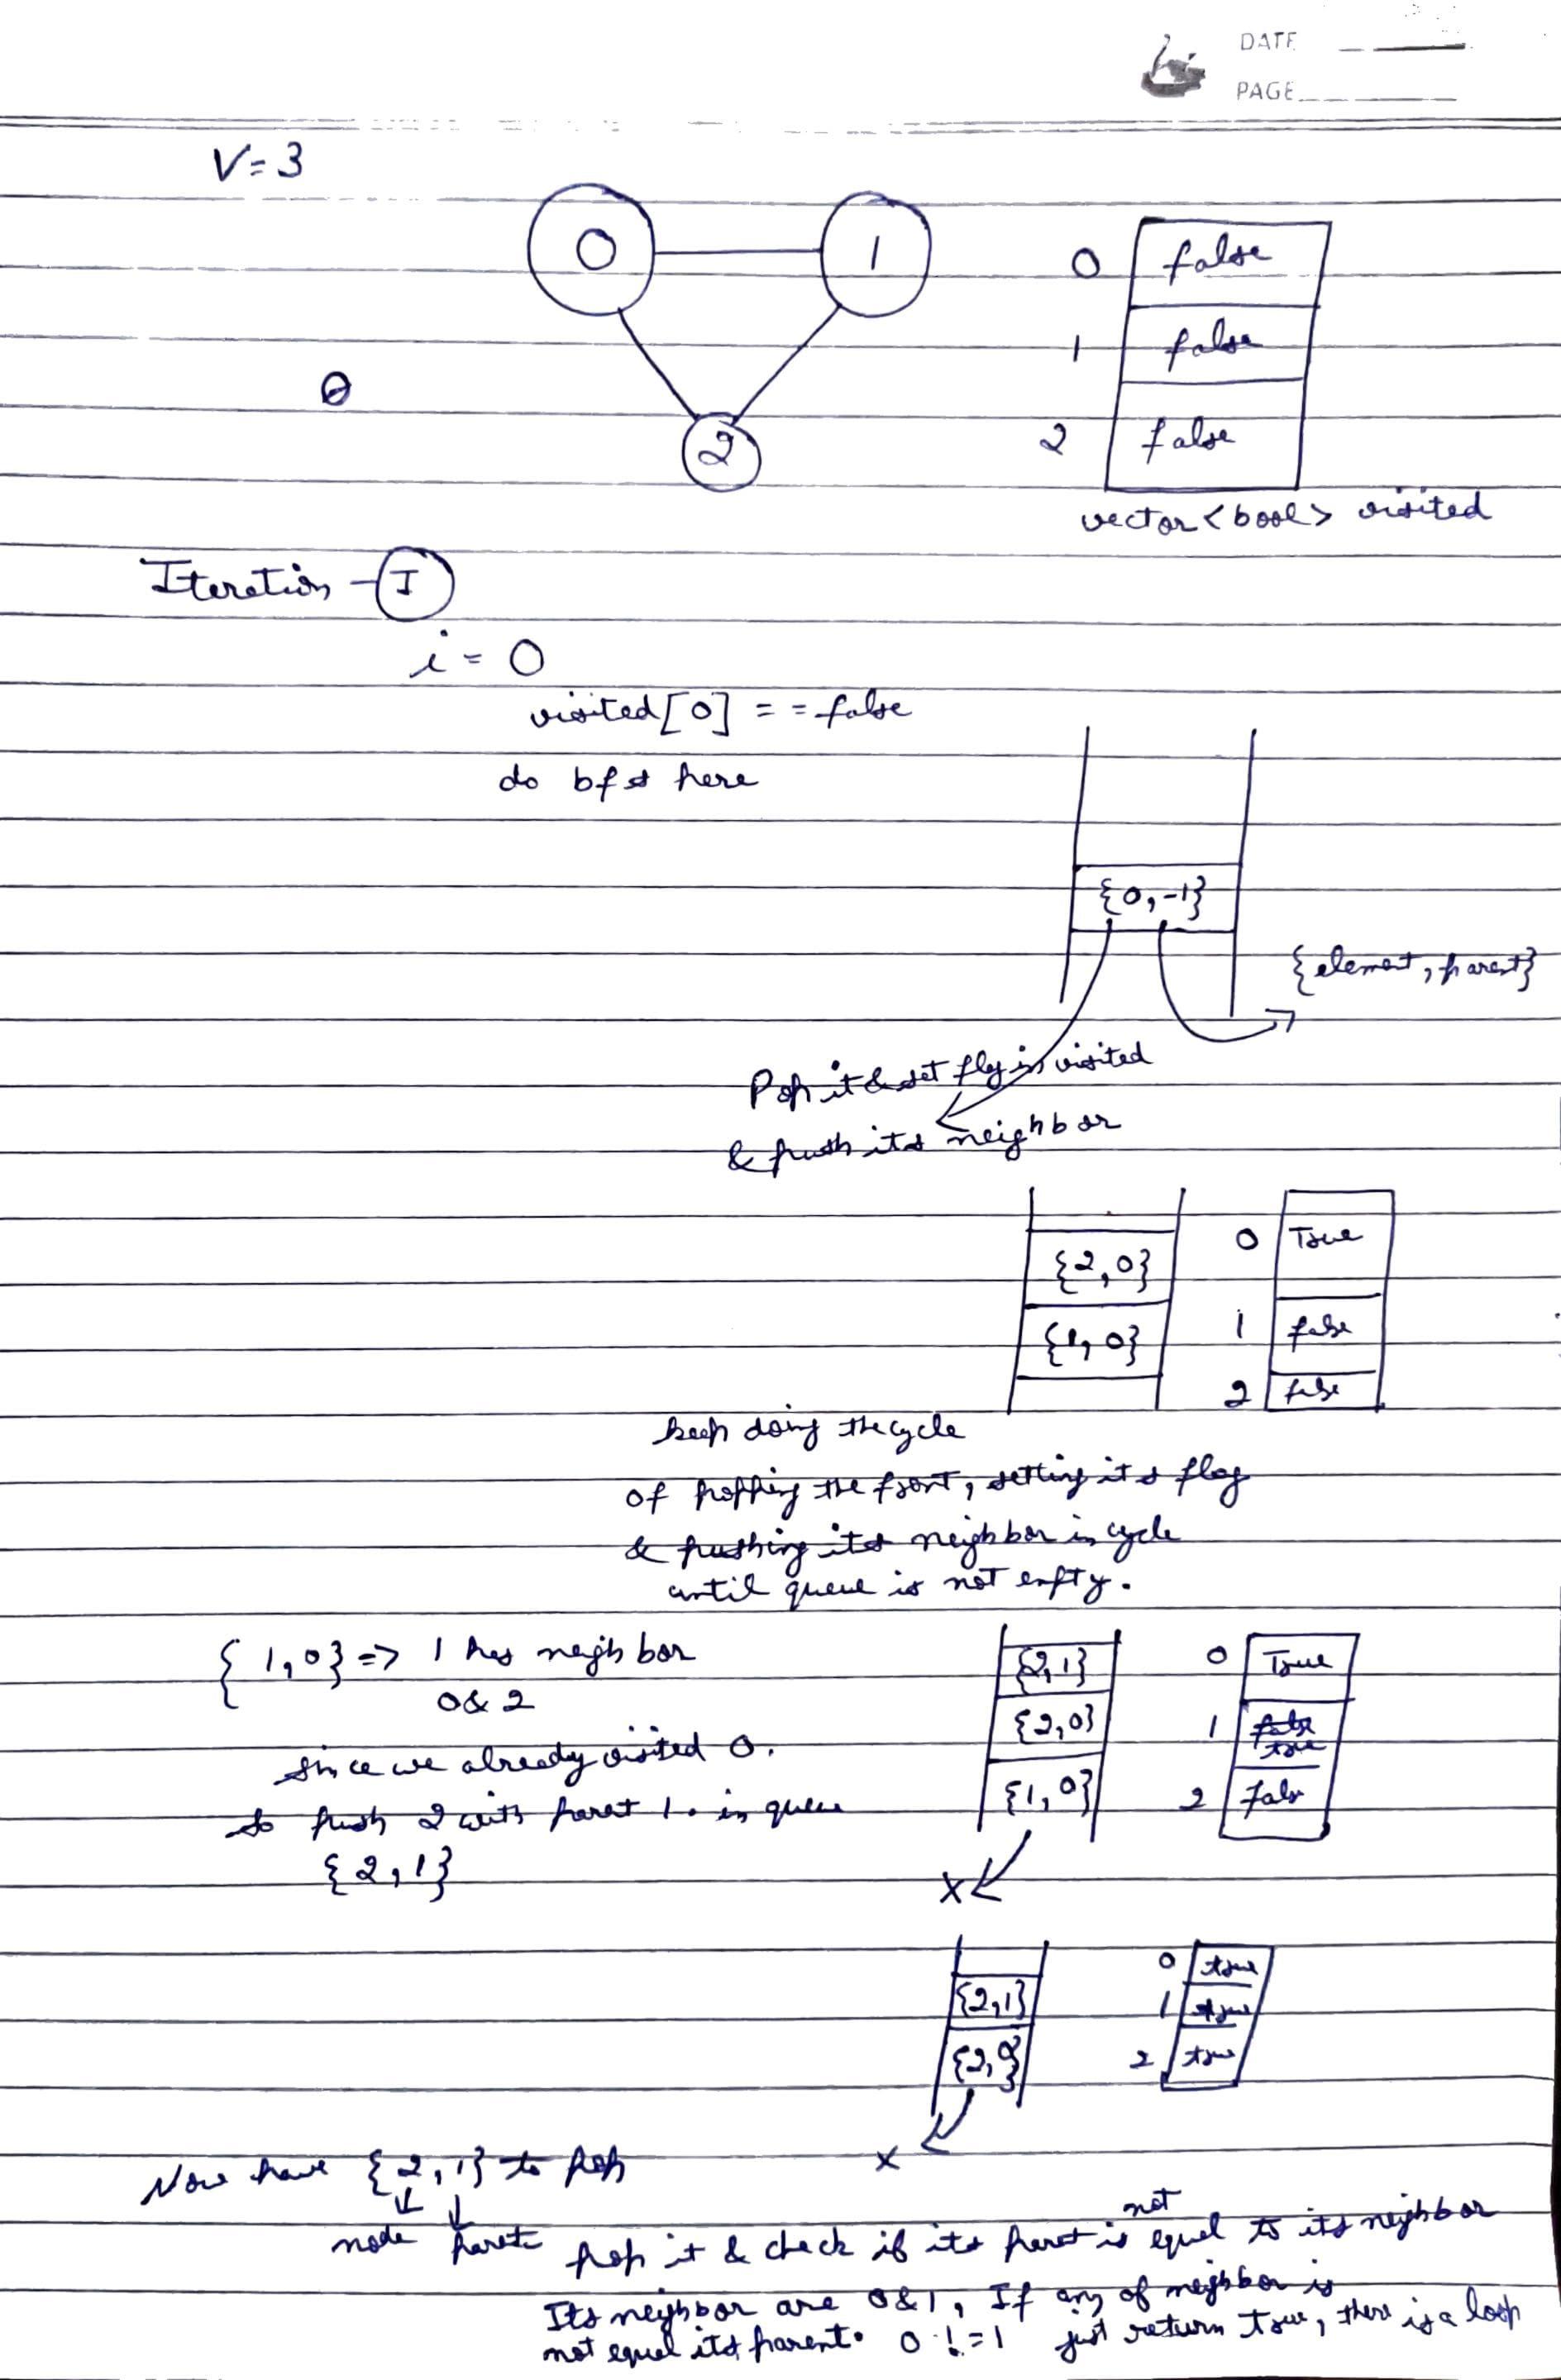 DATE
PAGE
V=3
0 1
2
0 false
1 false
2 false
vector<bool> visited
Iteration - I
i = 0
visited[0] == false
do bfs here
{0,-1}
{element, parent}
Pop it & set flag in visited
& push its neighbor
{2,0}
{1,0}
0 True
1 false
2 false
keep doing the cycle
of popping the front, setting its flag
& pushing its neighbor in cycle
until queue is not empty.
{1,0} => 1 has neighbor
0 & 2
since we already visited 0.
so push 2 with parent 1. in queue
{2,1}
{2,1}
{2,0}
{1,0}
0 True
1 false
true
2 false
x
{2,1}
{2,0}
0 true
1 true
2 true
x
Now have {2,1} to pop
node parent
pop it & check if its parent is not equal to its neighbor
Its neighbor are 0 & 1, If any of neighbor is
not equal its parent. 0 != 1 just return true, there is a loop